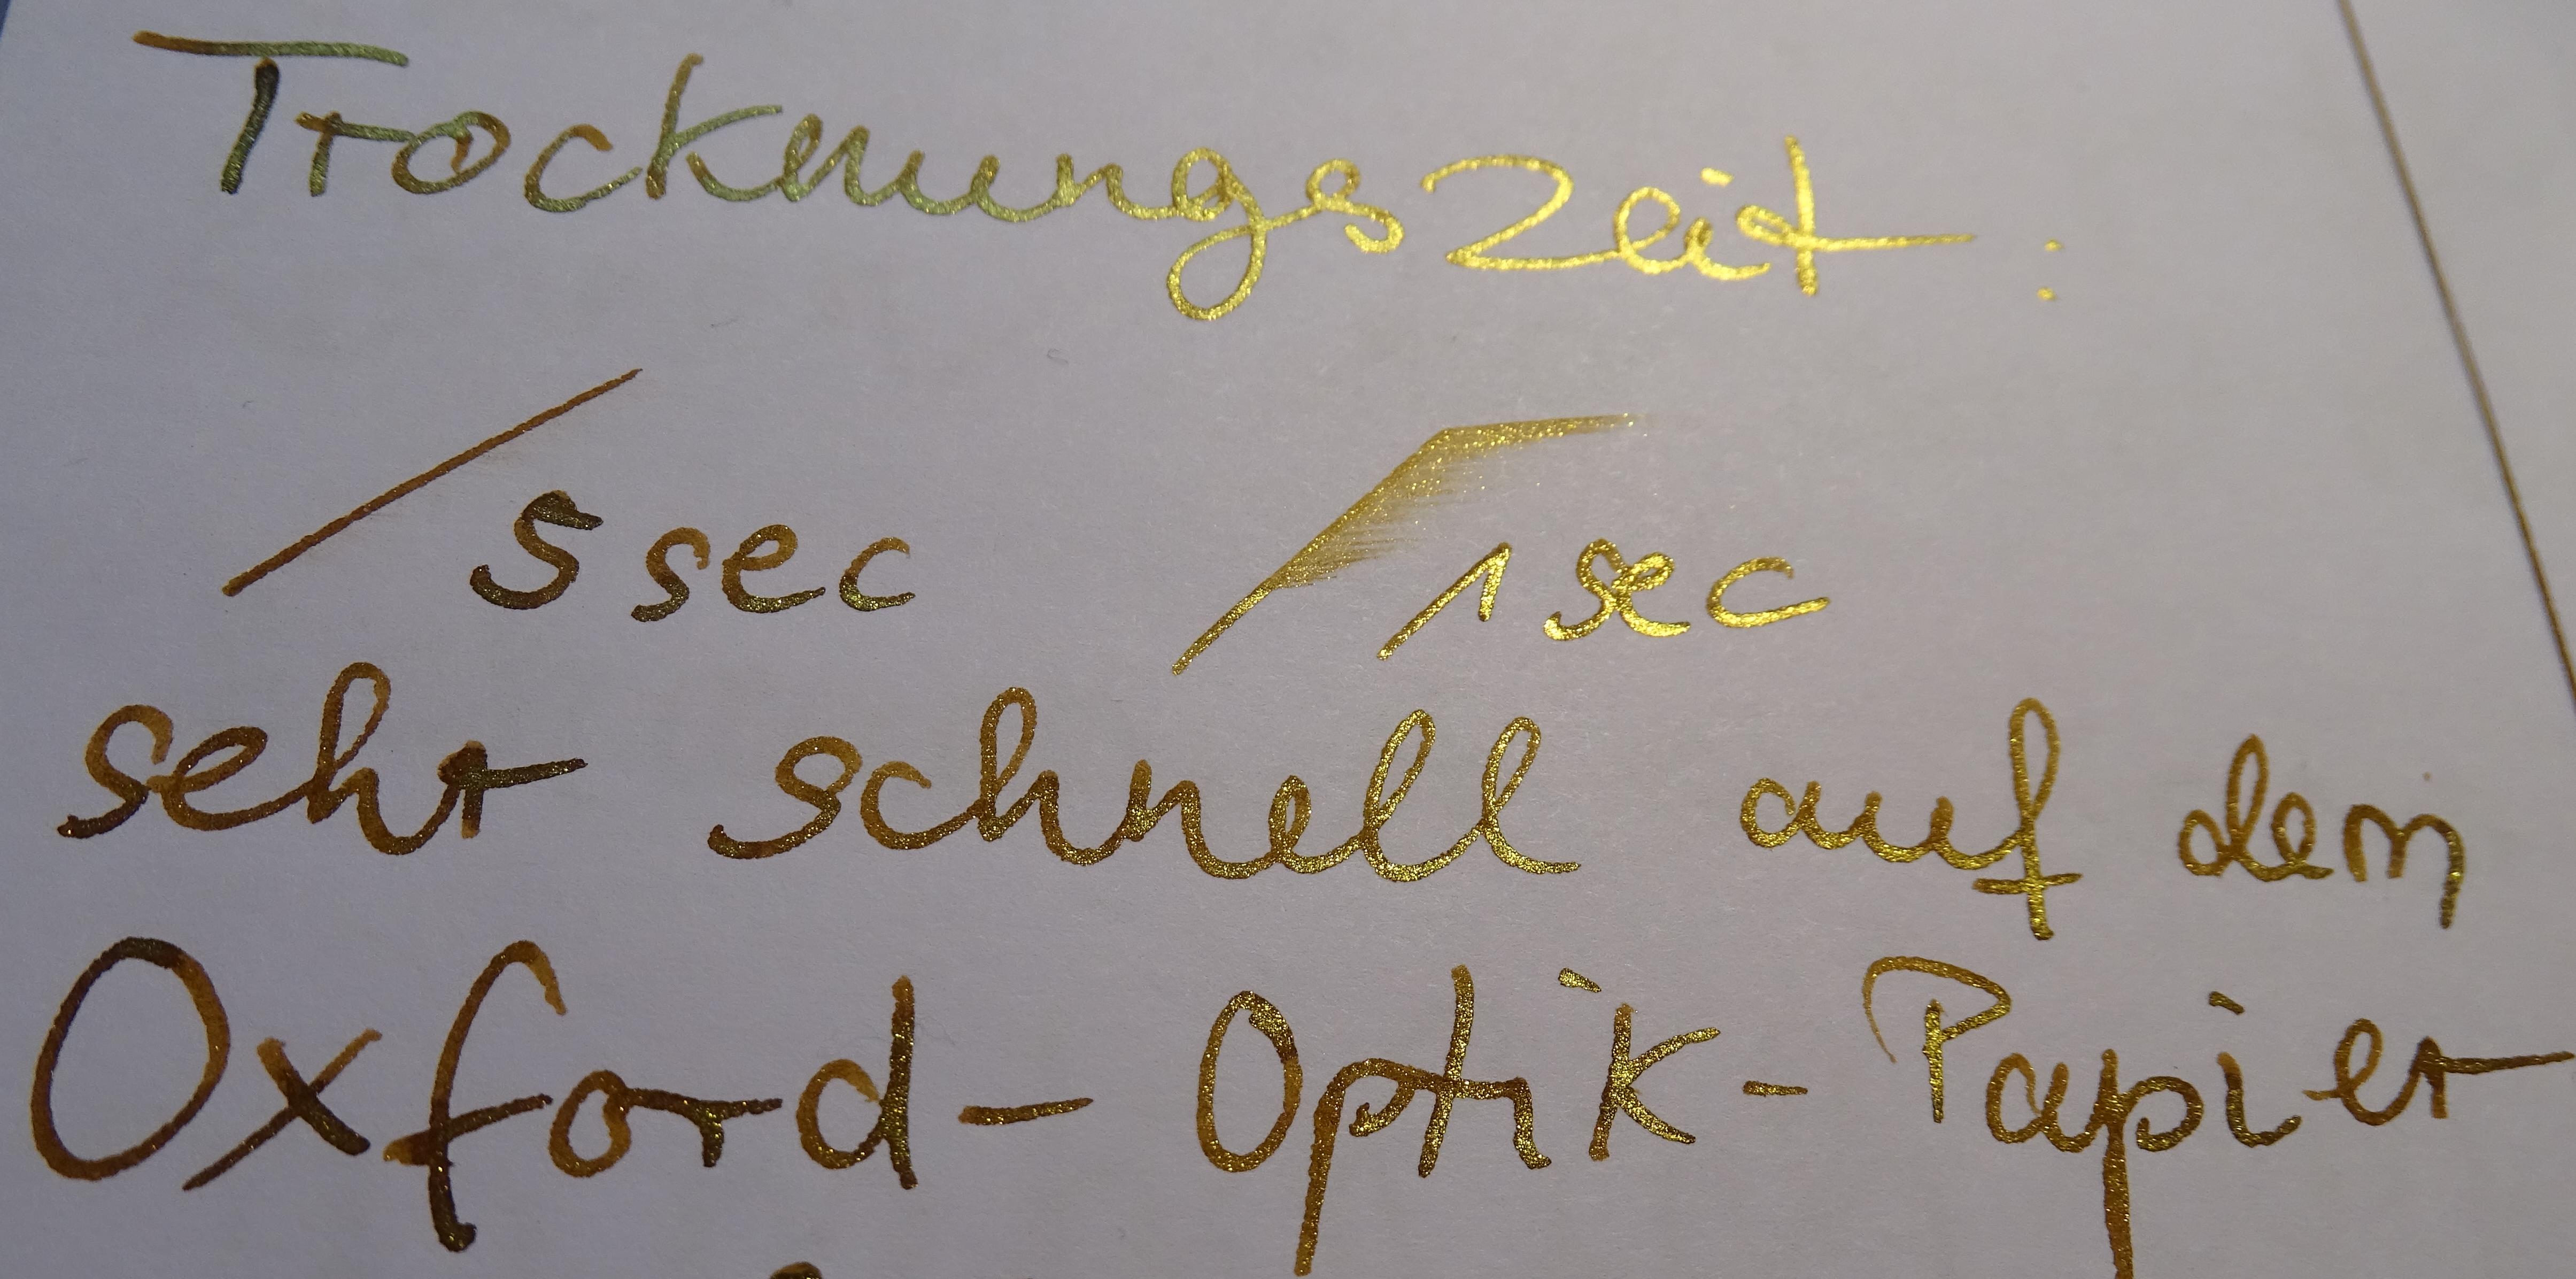 Trocknungszeit:
5 sec 1 sec
sehr schnell auf dem
Oxford-Optik-Papier